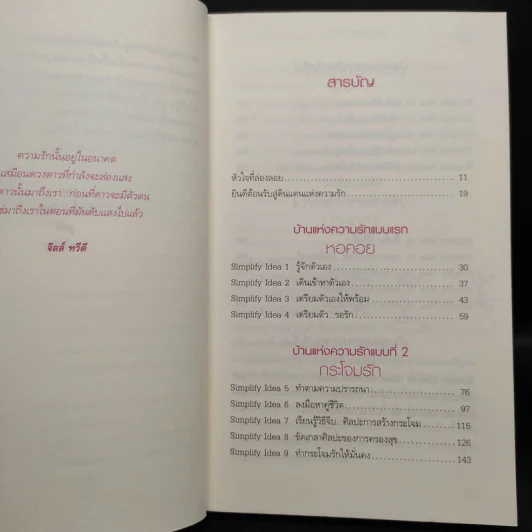 ความรักนั้นอยู่ในอนาคต
เสมือนดวงดาวที่กำลังจะส่องแสง
ดาวนั้นมาถึงเรา...ก่อนที่ดาวจะมีตัวตน
มาถึงเราในตอนที่มันดับแสงไปแล้ว
จิลล์ ทวีดี
สารบัญ
หัวใจที่ล่องลอย 11
ยินดีต้อนรับสู่ดินแดนแห่งความรัก 19
บ้านแห่งความรักแบบแรก
หอคอย
Simplify Idea 1 รู้จักตัวเอง 30
Simplify Idea 2 เดินเข้าหาตัวเอง 37
Simplify Idea 3 เตรียมตัวเองให้พร้อม 43
Simplify Idea 4 เตรียมตัว...รอรัก 59
บ้านแห่งความรักแบบที่ 2
กระโจมรัก
Simplify Idea 5 ทำตามความปรารถนา 76
Simplify Idea 6 ลงมือหาคู่ชีวิต 97
Simplify Idea 7 เรียนรู้วิธีจีบ...ศิลปะการสร้างกระโจม 115
Simplify Idea 8 ขัดเกลาศิลปะของการครองสุข 126
Simplify Idea 9 ทำกระโจมรักให้มั่นคง 143